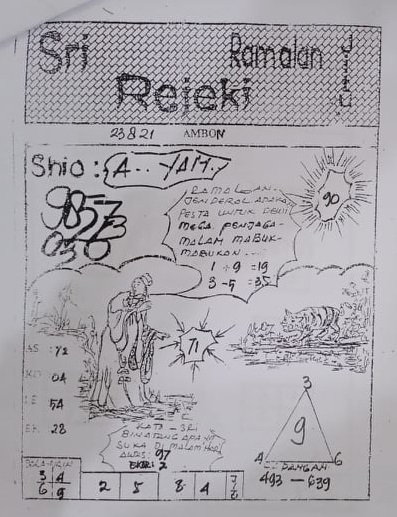 Sri
Ramalan
Rejeki
23821 AMBON
Shio : A...YAM..
9857
RAMALAN-
JENDERAL ADAKAN
PESTA UNTUK DEWI
MEGA PENJAGA-
MALAM MABUK-
MABUKAN...
1 ÷ 9 = 19
3 - 5 = 35
90
71
AS : 72
04
54
28
KATA - SRI
BINATANG APA YG
SUKA DI MALAM HARI
AWAS : 97
EKOR 2
3
9
4 6
PASANGAN
493 - 639
3 4
6 9
2 5 8 4